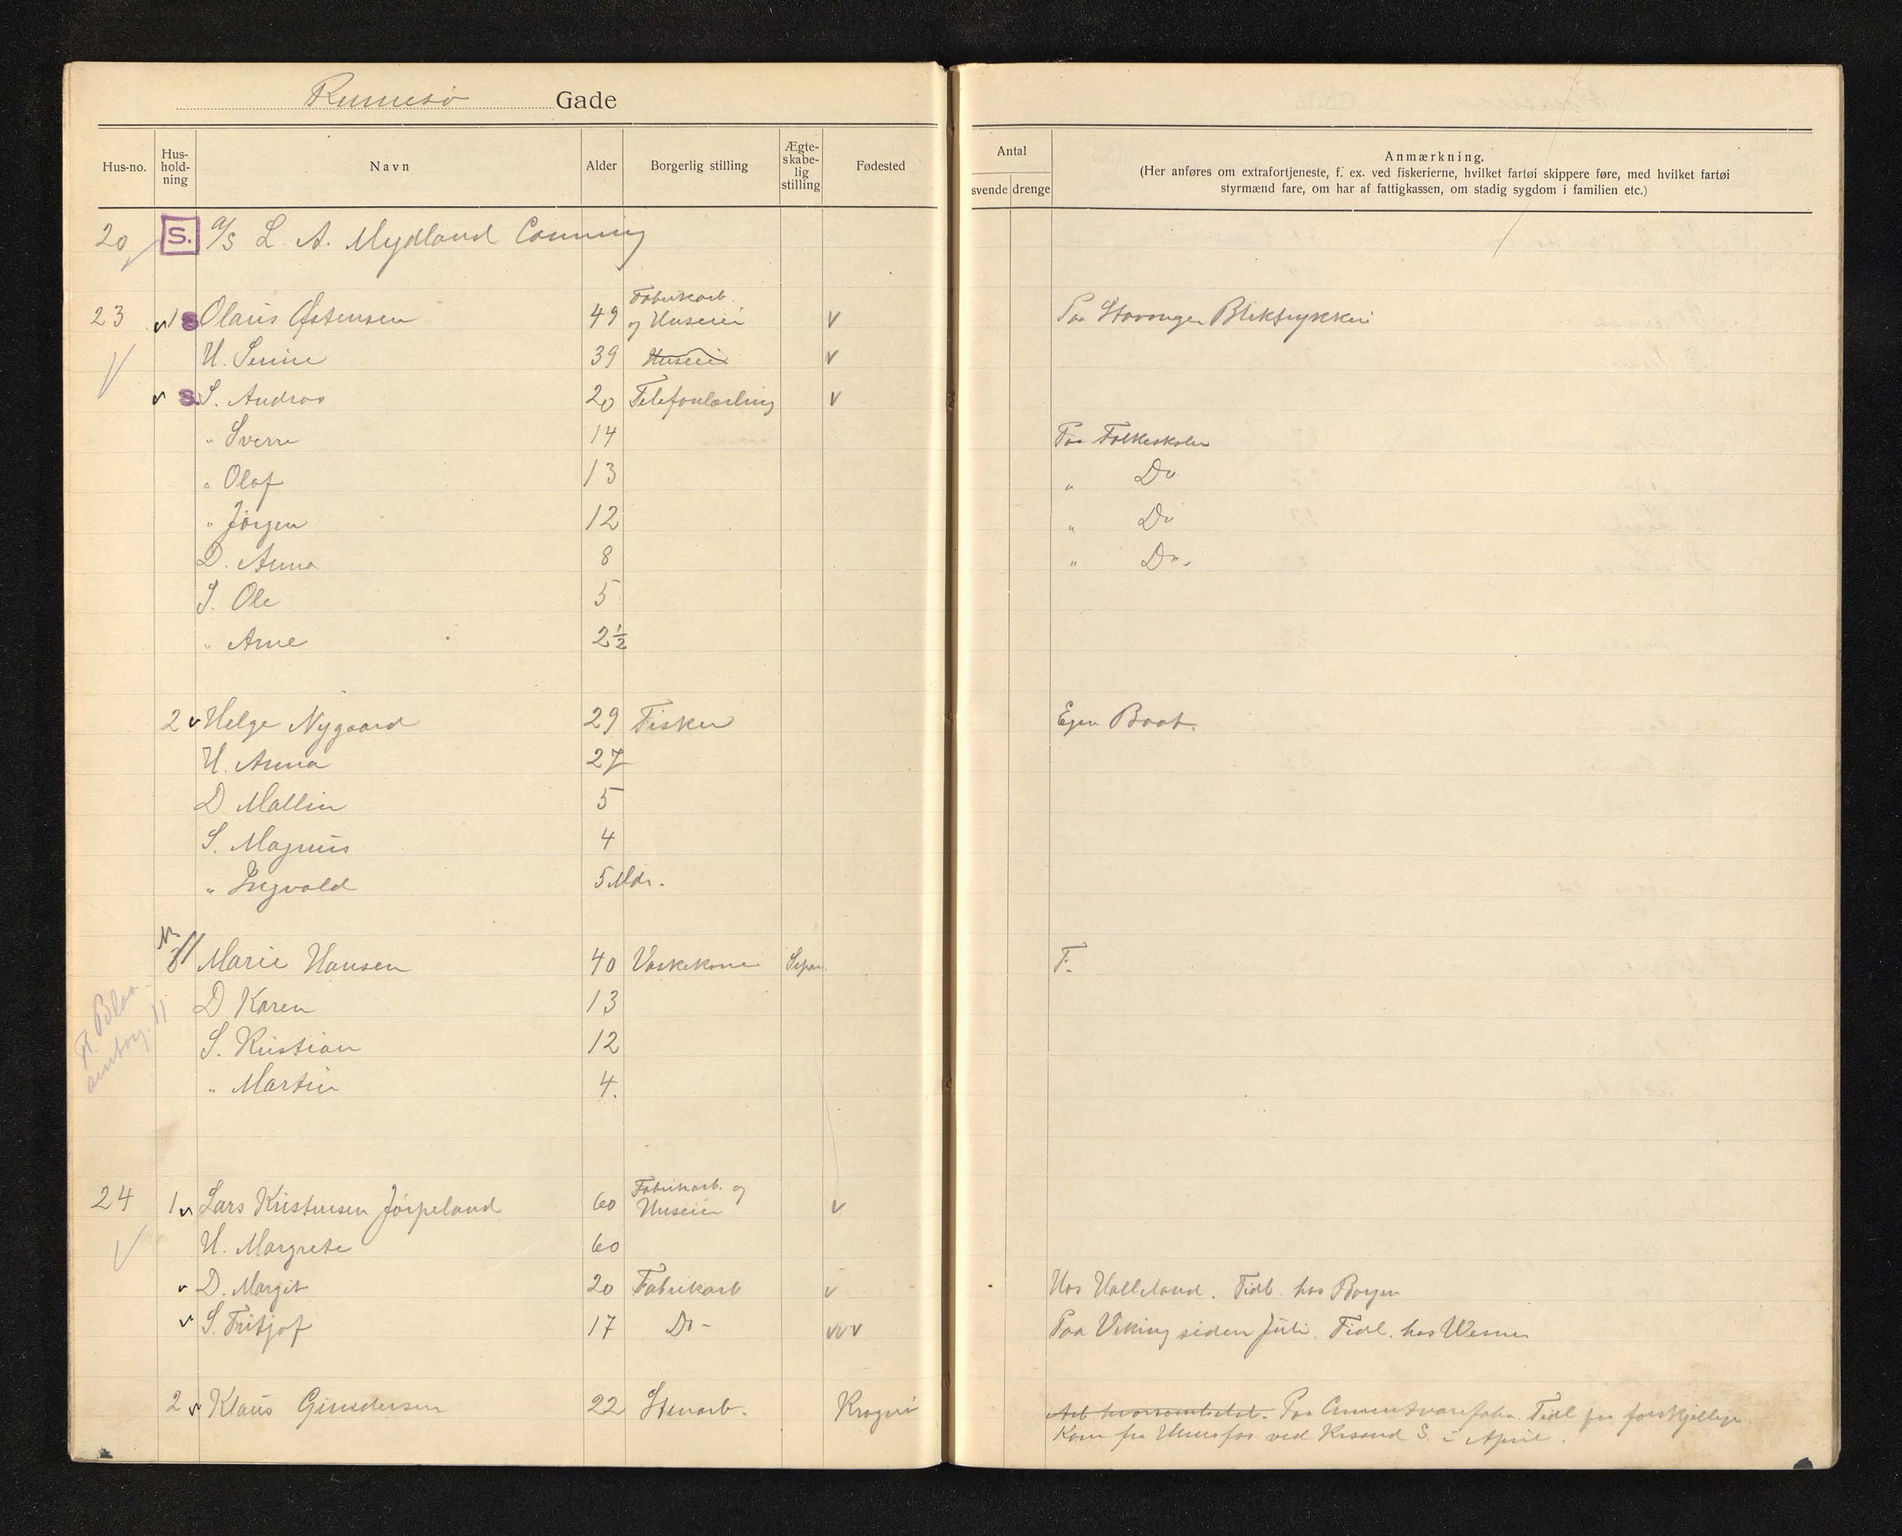 Gade
Hus-no. Hus-hold-ning Navn Alder Borgerlig stilling Ægte-skabe-lig stilling Fødested
Antal
svende drenge
Anmærkning.
(Her anføres om extrafortjeneste, f. ex. ved fiskerierne, hvilket fartøi skippere føre, med hvilket fartøi
styrmænd fare, om har af fattigkassen, om stadig sygdom i familien etc.)
20 S. A/S L. A. Mydland Canning
Fabrikarb.
23 1 S Olaus Østensen 49 og Huseier v Paa Stavanger Bliktrykkeri
H. Serine 39 Huseier v
S. S. Andreas 20 Telefonlærling v
" Sverre 14 Paa Folkeskolen
" Olaf 13 " Do
" Jørgen 12 " Do
D. Anna 8 " Do.
S. Ole 5
" Arne 2½
2 Helge Nygaard 29 Fisker Egen Baat.
H. Anna 27
D. Mallin 5
S. Magnus 4
" Ingvald 5 Mdr.
Marie Hansen 40 Vaskekone Separ. F.
D. Karen 13
S. Kristian 12
" Martin 4.
Fl. Blaa-
senborg. 11
Fabrikarb. og
24 1 Lars Kristensen Jørpeland 60 Huseier v
H. Margrete 60
D. Margit 20 Fabrikarb v Hos Halleland. Tidl. hos Borgen
S. Fritjof 17 Do- vvv Paa Viking siden Juli. Tidl. hos Wesnes
2 Klaus Gundersen 22 Stenarb. Kragerø Arb. hvorsomhelst. Paa Cementvarefabr. Tidl paa forskjellige
Kom fra Hunsfos ved Krsand S. i April.